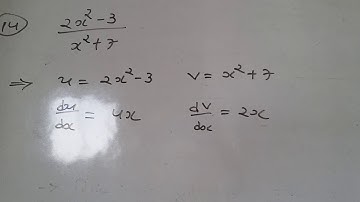 14) (2x² - 3)/(x² + 7)
⇒ u = 2x² - 3 v = x² + 7
du/dx = 4x dv/dx = 2x